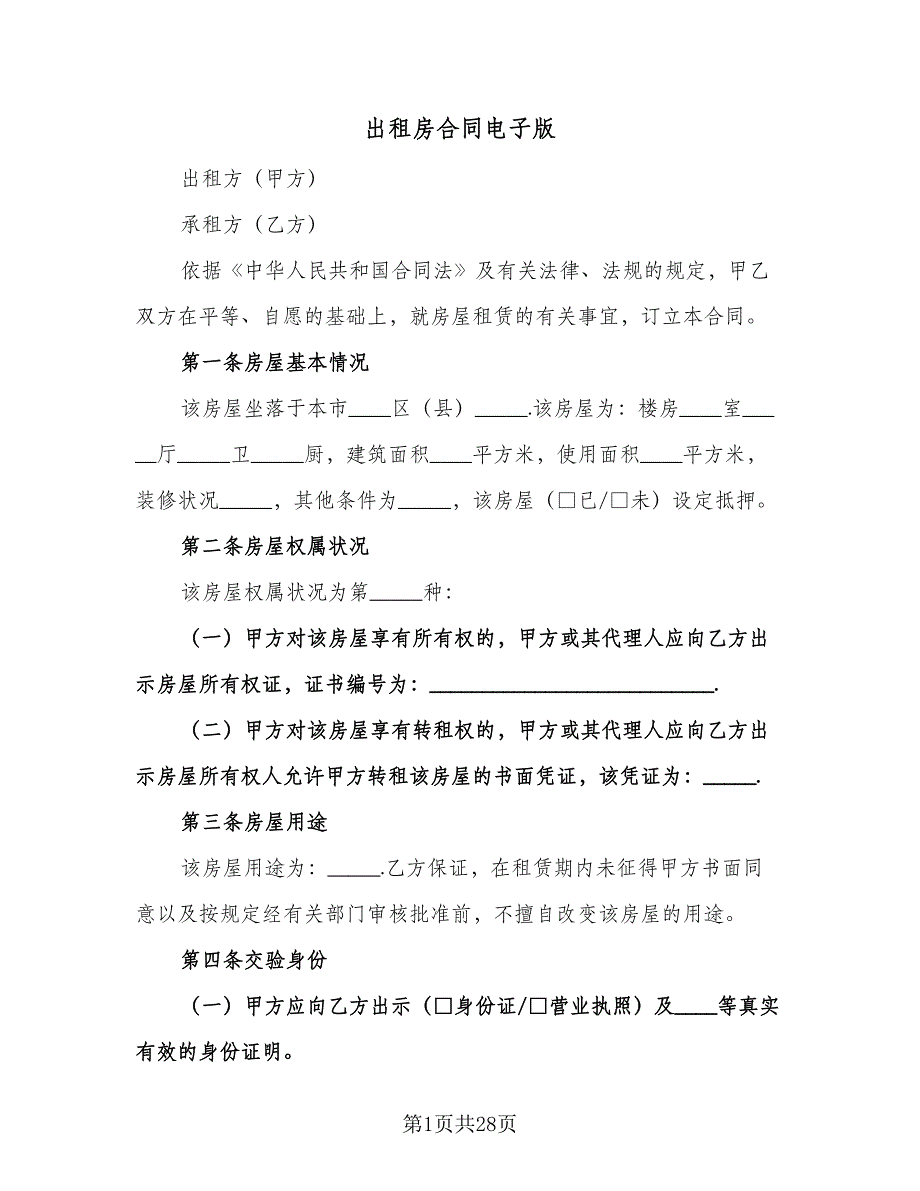 出租房合同电子版
出租方（甲方）
承租方（乙方）
依据《中华人民共和国合同法》及有关法律、法规的规定，甲乙
双方在平等、自愿的基础上，就房屋租赁的有关事宜，订立本合同。
第一条房屋基本情况
该房屋坐落于本市____区（县）_____.该房屋为：楼房____室___
__厅_____卫_____厨，建筑面积____平方米，使用面积____平方米，
装修状况_____，其他条件为_____，该房屋（□已/□未）设定抵押。
第二条房屋权属状况
该房屋权属状况为第_____种：
（一）甲方对该房屋享有所有权的，甲方或其代理人应向乙方出
示房屋所有权证，证书编号为：___________________________.
（二）甲方对该房屋享有转租权的，甲方或其代理人应向乙方出
示房屋所有权人允许甲方转租该房屋的书面凭证，该凭证为：_____.
第三条房屋用途
该房屋用途为：_____.乙方保证，在租赁期内未征得甲方书面同
意以及按规定经有关部门审核批准前，不擅自改变该房屋的用途。
第四条交验身份
（一）甲方应向乙方出示（□身份证/□营业执照）及____等真实
有效的身份证明。
第1页共28页